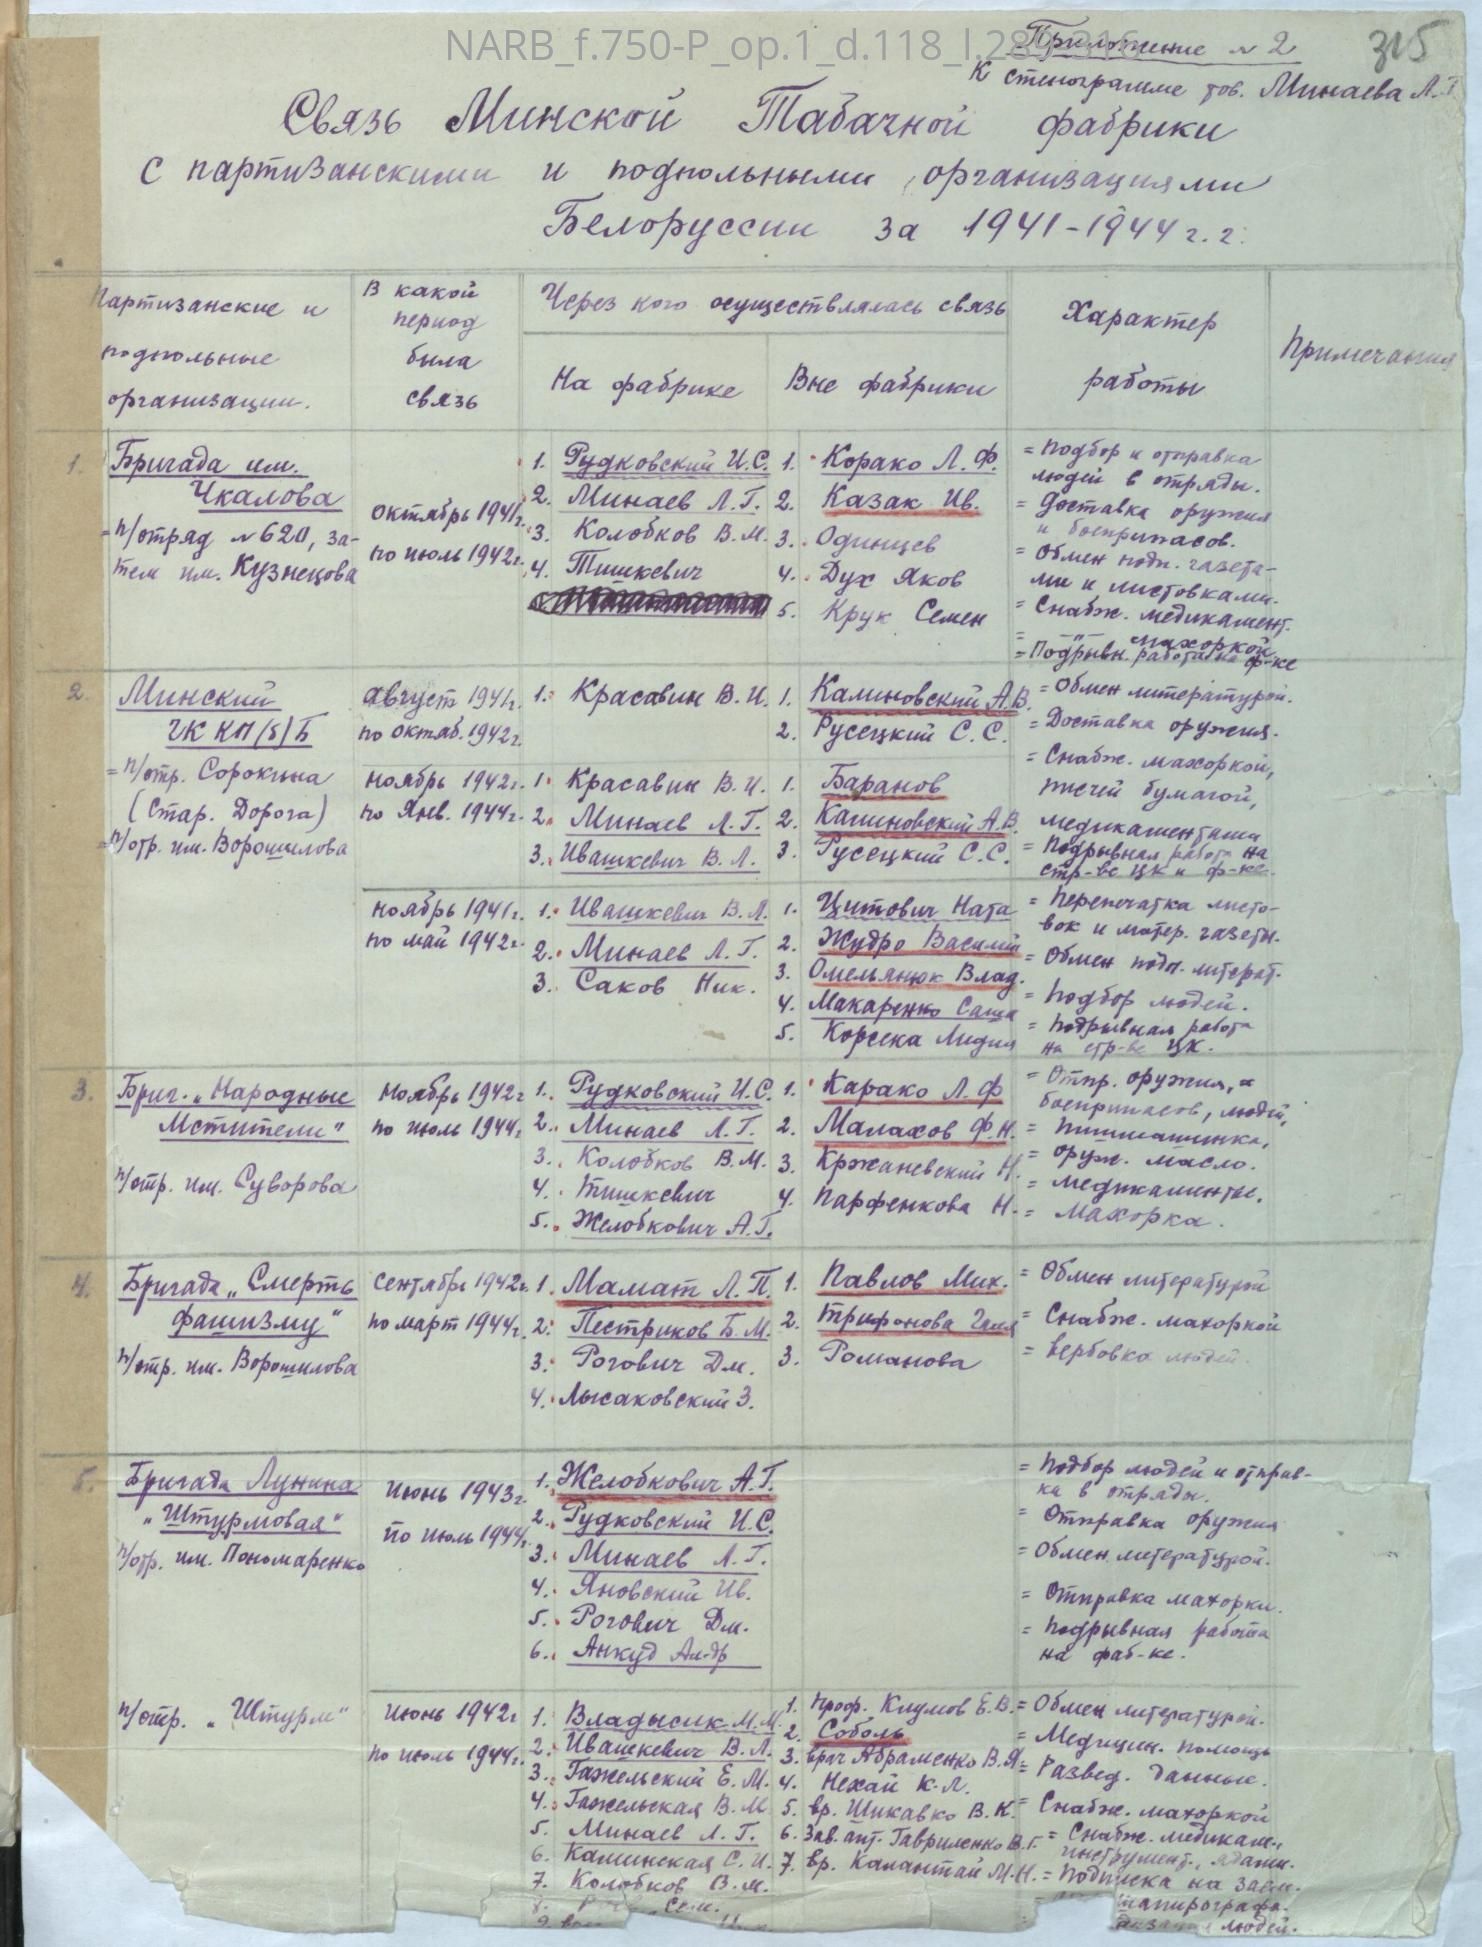 NARB_f.750-P_op.1_d.118_l.289-316
Приложение № 2
315
К стенограмме тов. Минаева Л.Г.
Связь Минской Табачной фабрики
с партизанскими и подпольными организациями
Белоруссии за 1941-1944 г.г.
Партизанские и
подпольные
организации.
В какой
период
была
связь
Через кого осуществлялась связь
На фабрике
Вне фабрики
Характер
работы
Примечания
1.
Бригада им.
Чкалова
= п/отряд № 620, за-
тем им. Кузнецова
октябрь 1941г.
по июль 1942г.
1. Рудковский И.С.
2. Минаев Л.Г.
3. Колобков В.М.
4. Тишкевич
1. Корако Л.Ф.
2. Казак Ив.
3. Одинцев
4. Дух Яков
5. Крук Семен
= Подбор и отправка
людей в отряды.
= Доставка оружия
и боеприпасов.
= Обмен подп. газета-
ми и листовками.
= Снабж. медикамент.
= -"- махоркой
= Подрывн. работа на ф-ке
2.
Минский
ГК КП/б/Б
= п/отр. Сорокина
(Стар. Дорога)
= п/отр. им. Ворошилова
август 1941г.
по октяб. 1942г.
1. Красавин В.И.
1. Калиновский А.В.
2. Русецкий С.С.
= Обмен литературой.
= Доставка оружия.
= Снабж. махоркой,
писчей бумагой,
медикаментами
= Подрывная работа на
стр-ве ЦК и ф-ке.
ноябрь 1942г.
по Янв. 1944г.
1. Красавин В.И.
2. Минаев Л.Г.
3. Ивашкевич В.Л.
1. Баранов
2. Калиновский А.В.
3. Русецкий С.С.
ноябрь 1941г.
по май 1942г.
1. Ивашкевич В.Л.
2. Минаев Л.Г.
3. Саков Ник.
1. Цитович Ната
2. Жудро Василий
3. Омельянюк Влад.
4. Макаренко Саша
5. Корсека Лидия
= Перепечатка листо-
вок и матер. газеты.
= Обмен подп. литерат.
= Подбор людей.
= Подрывная работа
на стр-ве ЦК.
3.
Бриг. „Народные
Мстители"
п/отр. им. Суворова
Ноябрь 1942г
по июль 1944г.
1. Рудковский И.С.
2. Минаев Л.Г.
3. Колобков В.М.
4. Тишкевич
5. Желобкович А.Г.
1. Карако Л.Ф
2. Малахов Ф.Н.
3. Кржаневский Н.
4. Парфенкова Н.
= Отпр. оружия,
боеприпасов, людей,
= Пишмашинка,
= оруж. масло.
= Медикаменты.
= Махорка.
4.
Бригада „Смерть
фашизму"
п/отр. им. Ворошилова
Сентябрь 1942г.
по март 1944г.
1. Мамат Л.П.
2. Пестриков Б.М.
3. Рогович Дм.
4. Лысаковский З.
1. Павлов Мих.
2. Трифонова Галя
3. Романова
= Обмен литературой
= Снабж. махоркой
= вербовка людей.
5.
Бригада Лунина
„Штурмовая"
п/отр. им. Пономаренко
Июнь 1943г.
по июль 1944г.
1. Желобкович А.Г.
2. Рудковский И.С.
3. Минаев Л.Г.
4. Яновский Ив.
5. Рогович Дм.
6. Анкуд Ал-др
= Подбор людей и отправ-
ка в отряды.
= Отправка оружия
= Обмен литературой.
= Отправка махорки.
= Подрывная работа
на фаб-ке.
п/отр. „Штурм"
Июнь 1942г
по июль 1944г.
1. Владысик М.М.
2. Ивашкевич В.Л.
3. Гажельский Е.М.
4. Гажельская В.М.
5. Минаев Л.Г.
6. Каминская С.И.
7. Колобков В.М.
8. Сем.
9.
1. Проф. Клумов Е.В.
2. Соболь
3. врач Абраменко В.Я.
4. Нехай К.Л.
5. вр. Шикавко В.К.
6. Зав. апт. Гавриленко В.Г.
7. вр. Калантай М.Н.
= Обмен литературой.
= Медицин. помощь
= Развед. данные.
= Снабж. махоркой
= Снабж. медикам.,
инструмент., ядами.
= Подписка на заем.
людей.